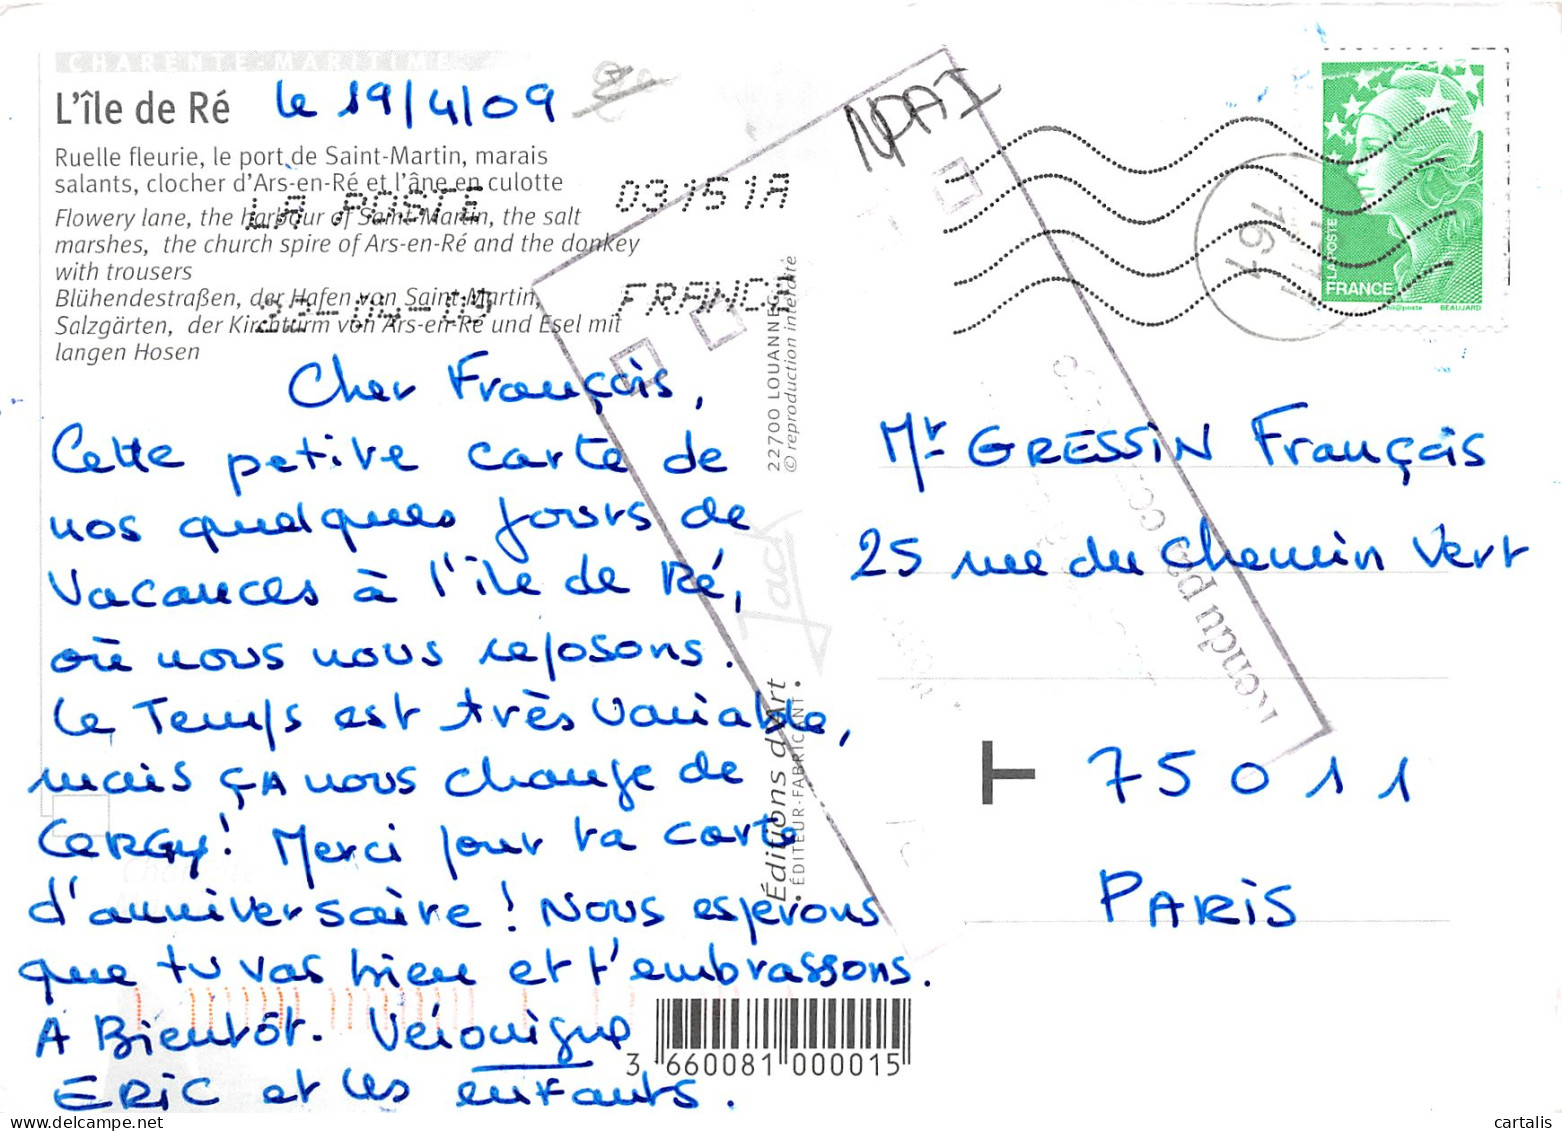 CHARENTE-MARITIME
L'île de Ré
le 19/4/09
Ruelle fleurie, le port de Saint-Martin, marais
salants, clocher d'Ars-en-Ré et l'âne en culotte
Flowery lane, the harbour of Saint-Martin, the salt
marshes, the church spire of Ars-en-Ré and the donkey
with trousers
Blühendestraßen, der Hafen von Saint-Martin,
Salzgärten, der Kirchturm von Ars-en-Ré und Esel mit
langen Hosen
LA POSTE 03151A
23-04-09 FRANCE
Cher François,
Cette petite carte de
nos quelques jours de
Vacances à l'île de Ré,
où nous nous reposons.
Le Temps est très variable,
mais ça nous change de
CERGY! Merci pour ta carte
d'anniversaire! Nous esperons
que tu vas bien et t'embrassons.
A Bientôt. Véronique
ERIC et les enfants.
22700 LOUANNEC
© reproduction interdite
Jack
Éditions d'Art
• ÉDITEUR-FABRICANT •
3 660081 000015
NPAI
LA POSTE
FRANCE
BEAUJARD
Mr GRESSIN François
25 rue du Chemin Vert
T 75011
PARIS
delcampe.net
cartalis